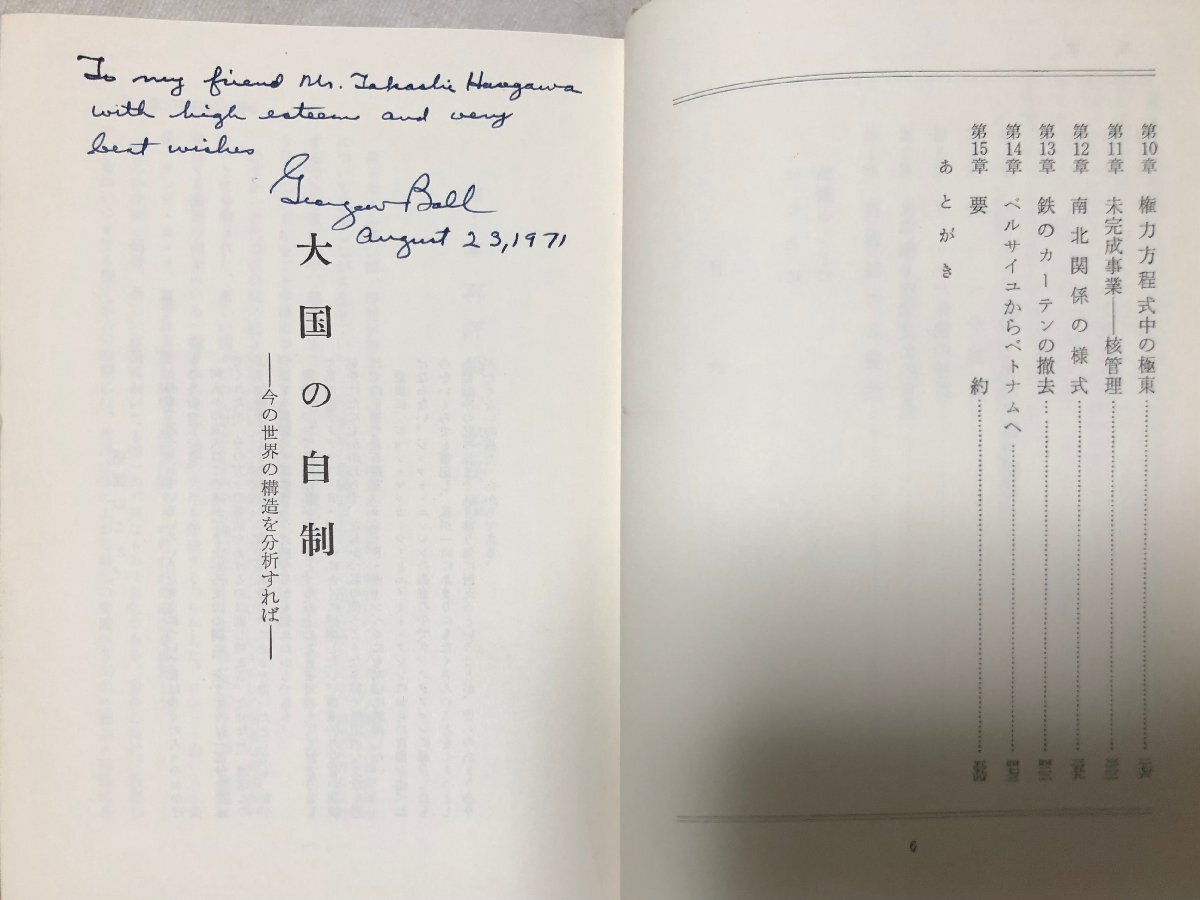 To my friend Mr. Takashi Hasegawa
with high esteem and very
best wishes
George W Ball
August 23, 1971
大国の自制
――今の世界の構造を分析すれば――
第10章 権力方程式中の極東
第11章 未完成事業――核管理
第12章 南北関係の様式
第13章 鉄のカーテンの撤去
第14章 ベルサイユからベトナムへ
第15章 要約
あとがき
6